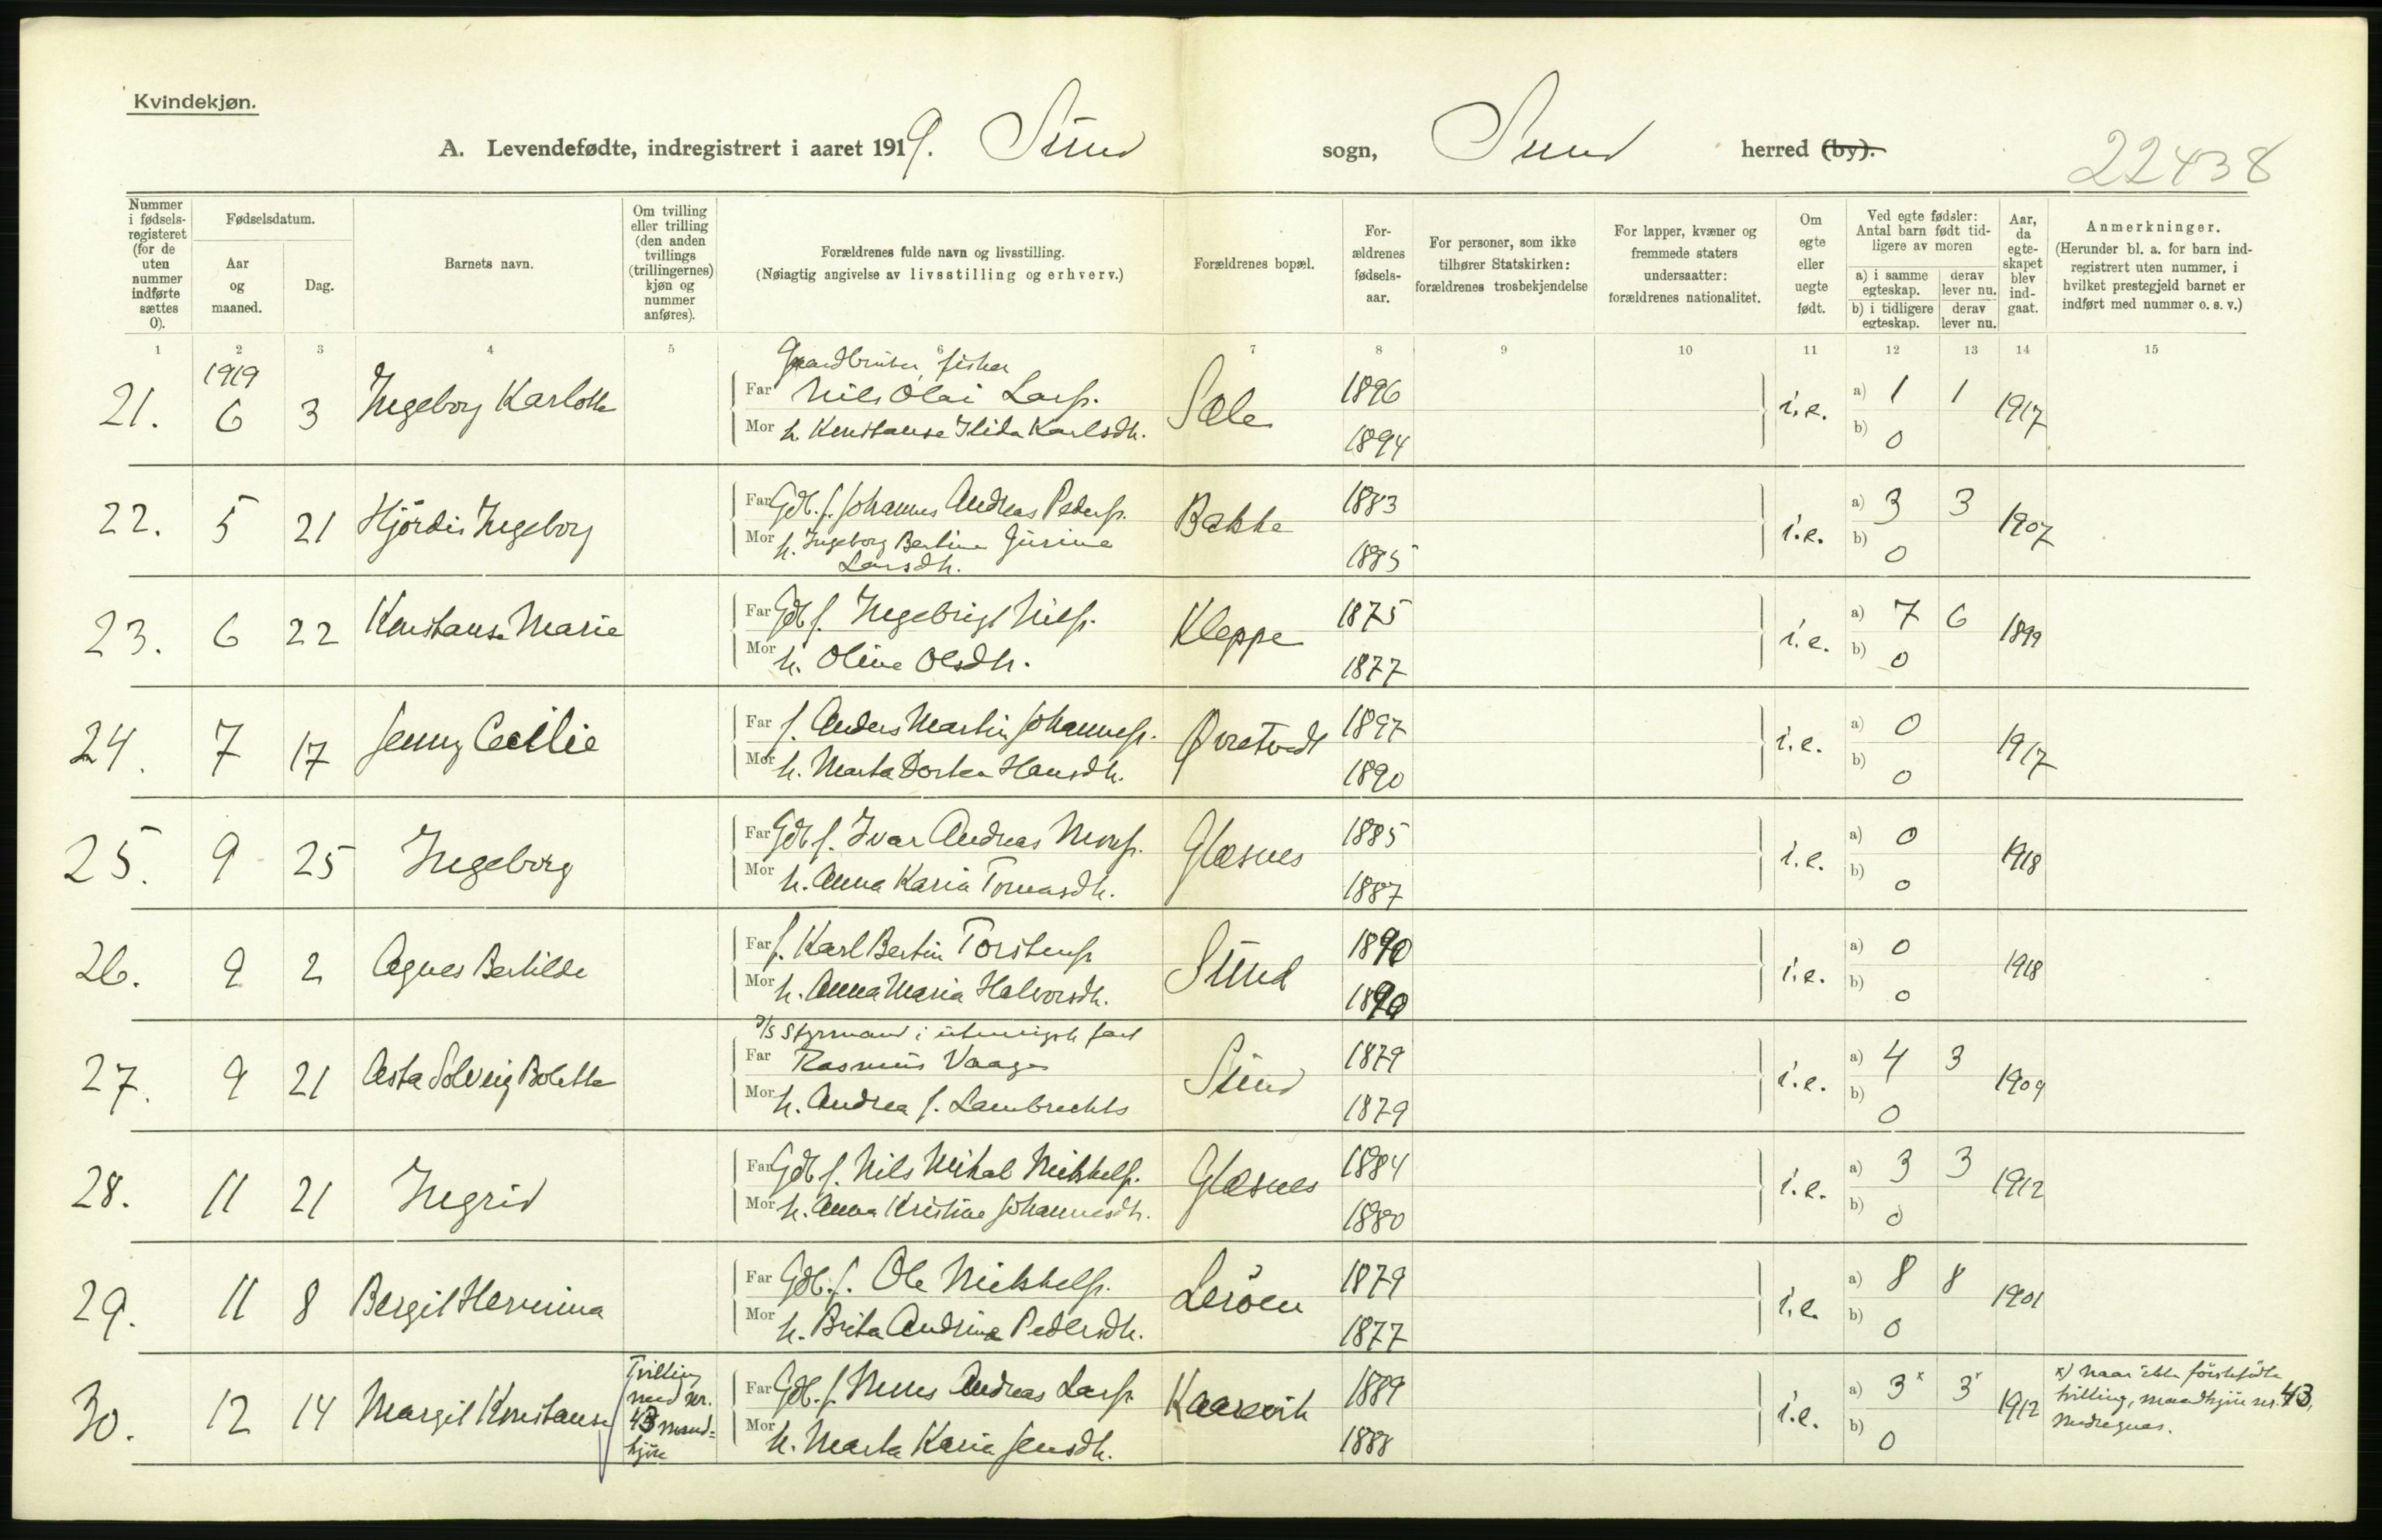 Kvindekjøn.
A. Levendefødte, indregistrert i aaret 1919. Sund sogn, Sund herred (by).
22438
Nummer i fødselsregisteret (for de uten nummer indførte sættes 0).
Fødselsdatum.
Aar og maaned.
Dag.
Barnets navn.
Om tvilling eller trilling (den anden tvillings (trillingernes) kjøn og nummer anføres).
Forældrenes fulde navn og livsstilling.
(Nøiagtig angivelse av livsstilling og erhverv.)
Forældrenes bopæl.
Forældrenes fødselsaar.
For personer, som ikke tilhører Statskirken: forældrenes trosbekjendelse
For lapper, kvæner og fremmede staters undersaatter: forældrenes nationalitet.
Om egte eller uegte født.
Ved egte fødsler: Antal barn født tidligere av moren
a) i samme egteskap. derav lever nu.
b) i tidligere egteskap. derav lever nu.
Aar, da egteskapet blev indgaat.
Anmerkninger.
(Herunder bl. a. for barn indregistrert uten nummer, i hvilket prestegjeld barnet er indført med nummer o. s. v.)
1 2 3 4 5 6 7 8 9 10 11 12 13 14 15
1919
Gaardbruker, fisker
21. 6 3 Ingeborg Karlotte Far Nils Olai Larss. Sæle 1896 i.e. a) 1 1 1917
Mor h. Konstanse Ilida Karlsdtr. 1894 b) 0
22. 5 21 Hjördis Ingeborg Far Gdb. f. Johannes Andreas Peders. Bakke 1883 i.e. a) 3 3 1907
Mor h. Ingeborg Bertine Gurine Larsdtr. 1885 b) 0
23. 6 22 Konstanse Marie Far Gdb f. Ingebrigt Nilss. Kleppe 1875 i.e. a) 7 6 1899
Mor h. Oline Olsdtr. 1877 b) 0
24. 7 17 Jenny Cecilie Far f. Anders Martin Johanness. Øvretvedt 1897 i.e. a) 0 1917
Mor h. Marta Dortea Hansdtr. 1890 b) 0
25. 9 25 Ingeborg Far Gdb f. Ivar Andreas Mons. Glæsnes 1885 i.e. a) 0 1918
Mor h. Anna Karia Tomasdtr. 1887 b) 0
26. 9 2 Agnes Bertilde Far f. Karl Bertin Torstens. Sund 1890 i.e. a) 0 1918
Mor h. Anna Maria Halvorsdtr. 1890 b) 0
Styrmand i utenrigsk fart
27. 9 21 Asta Solveig Bolette Far Rasmus Vaage Sund 1879 i.e. a) 4 3 1909
Mor h. Andrea f. Lambrechts 1879 b) 0
28. 11 21 Ingrid Far Gdb f. Nils Mikal Mikkels. Glæsnes 1884 i.e. a) 3 3 1912
Mor h. Anna Kristine Johannesdtr. 1880 b) 0
29. 11 8 Bergit Hermina Far Gdb. f. Ole Mikkels. Leröen 1879 i.e. a) 8 8 1901
Mor h. Brita Andrina Pedersdtr. 1877 b) 0
30. 12 14 Margit Konstanse Tvilling med nr. 43 mandkjön Far Gdb. f. Mons Andreas Larss. Kaarevik 1889 i.e. a) 3x 3x 1912 x) Naar ikke förstefödte tvilling, mandkjön nr. 43, medregnes.
Mor h. Marta Karia Jensdtr. 1888 b) 0